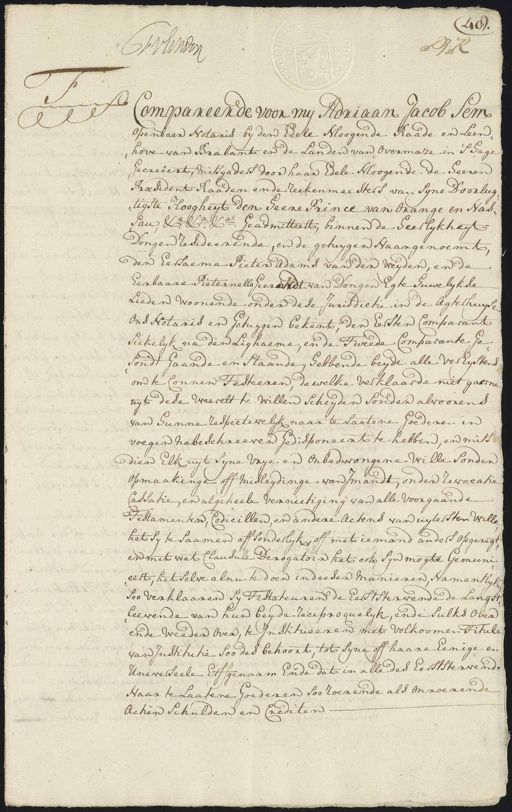 48.
Compareerde voor my Adriaan Jacob Sem
openbaer Notaris by den Edele Hoogende Raade en Leen
hove van Brabant en de Landen van Overmaze in S'Hage
Gecreëert, mitsgaders door haar Edele Hoogende de Heeren
President Raaden ende Reekenmeesters van Syne Doorlug
tigste Hoogheyt den Heere Prince van Orange en Nas
sau &a. &a. &a. Geadmitteert, binnen de Heerlykheyt
Dongen Resideerende, en de getuygen Naargenoemt,
den Eersaeme Pieter Adams van der Weyden, en de
Eerbaare Pieternella van Dongen Egte Huwelykse
Lieden woonende onder dese Jurisdictie in de
Ons Notaris en Getuygen bekent, den Eersten Comparant
Siekelyk na den Lighaeme, en de Tweede Comparante Ge
sont gaande en Staande, Hebbende beyde alle vereystens
om te Connen Testeeren, dewelke verklaarde niet gaerne
uyt dese Weerelt te Willen Scheyden Sonder alvoorens
van hunne respectivelyk naar te Laatene Goederen in
voegen nabeschreeven Gedisponeert te hebben, en mits
dien Elk uyt Syne vrye en onbedwongene Wille Sonder
opmaakinge off misleydinge van Jmandt, onder revocatie
Cassatie, en algeheele vernietiging van alle voorgaande
Testamenten, Codicillen, en andere Actens van uyterste Wille
het Sy te saamen off sonderlyk, off met iemand anders opgeregt,
en met wat Clausule Derogatoir het ook Syn mogte Gemuni
eert, het selve alnu te doen in deeser Manieren, Namentlyk
Soo verklaaren Sy Testateuren de Eerststervende de Langst
Leevende van hun beyde reciproquelyk, ende Sulks over
ende weeder over, te Institueeren met volkoomen Tytule
van Institutie Soo dat behoort, tot Syne off haare Eenige en
Universeele Erffgenaam Ende dat in alle des Eerststervende
Naar te Laatene Goederen Soo roerende als onroerende
Actien Schulden en Crediten